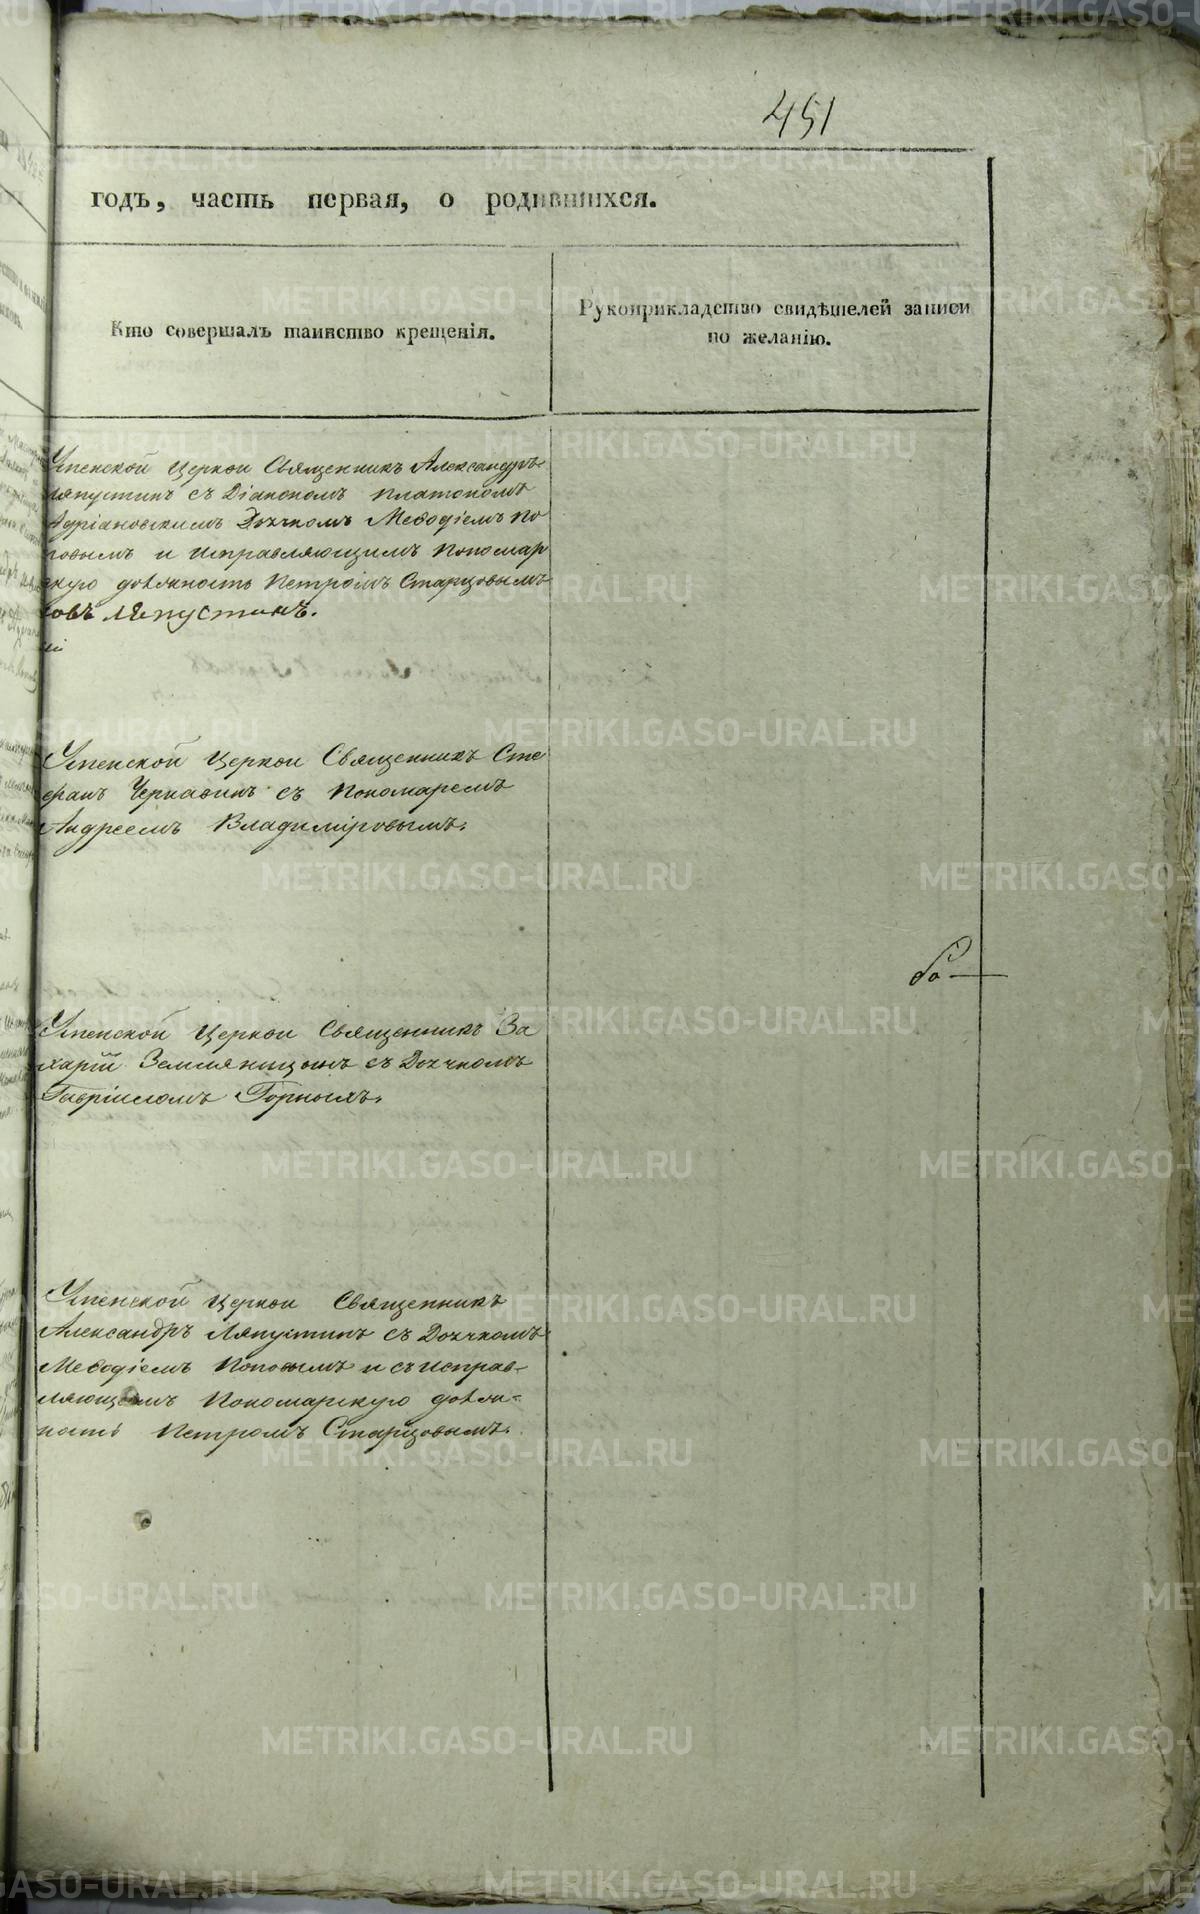 451
годъ, часть первая, о родившихся.
Кто совершалъ таинство крещенія.
Рукоприкладство свидѣтелей записи
по желанію.
Успенской Церкви Священникъ Александръ
Ляпустинъ съ Діакономъ Платономъ
Адріановскимъ Дьячкомъ Меѳодіемъ По
повымъ и исправляющимъ Пономар
скую должность Петромъ Старцовымъ
Ляпустинъ.
Успенской Церкви Священникъ Сте
фанъ Чернавинъ съ Пономаремъ
Андреемъ Владиміровымъ.
Успенской Церкви Священникъ За
харій Земляницынъ съ Дьячкомъ
Гавріиломъ Горныхъ.
Успенской Церкви Священникъ
Александръ Ляпустинъ съ Дьячкомъ
Меѳодіемъ Поповымъ и съ исправ-
ляющимъ Пономарскую долж-
ность Петромъ Старцовымъ.
METRIKI.GASO-URAL.RU